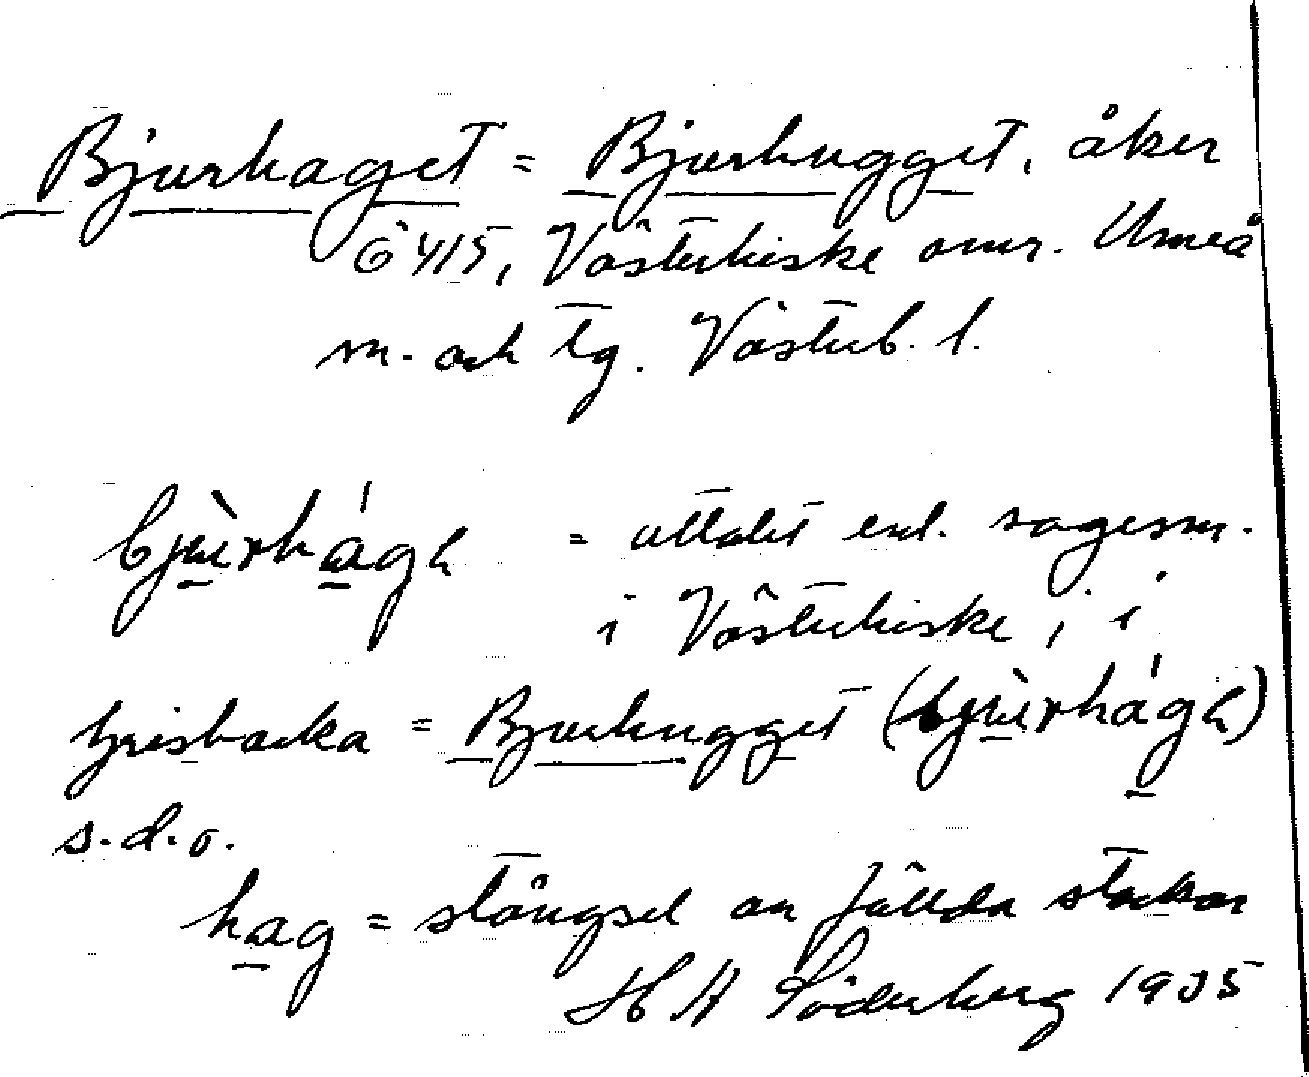 Bjurhaget = Bjurhugget, åker
Ö 415, Västerhiske omr. Umeå
m. och tg. Västerb. l.
bju̱rha̱gh = uttalet enl. sagesm.
i Västerhiske, i
Grisbacka = Bjurhugget (bju̱rhagh)
s.d.o.
ha̱g = stängsel av fällda stockar
H A Söderberg 1935